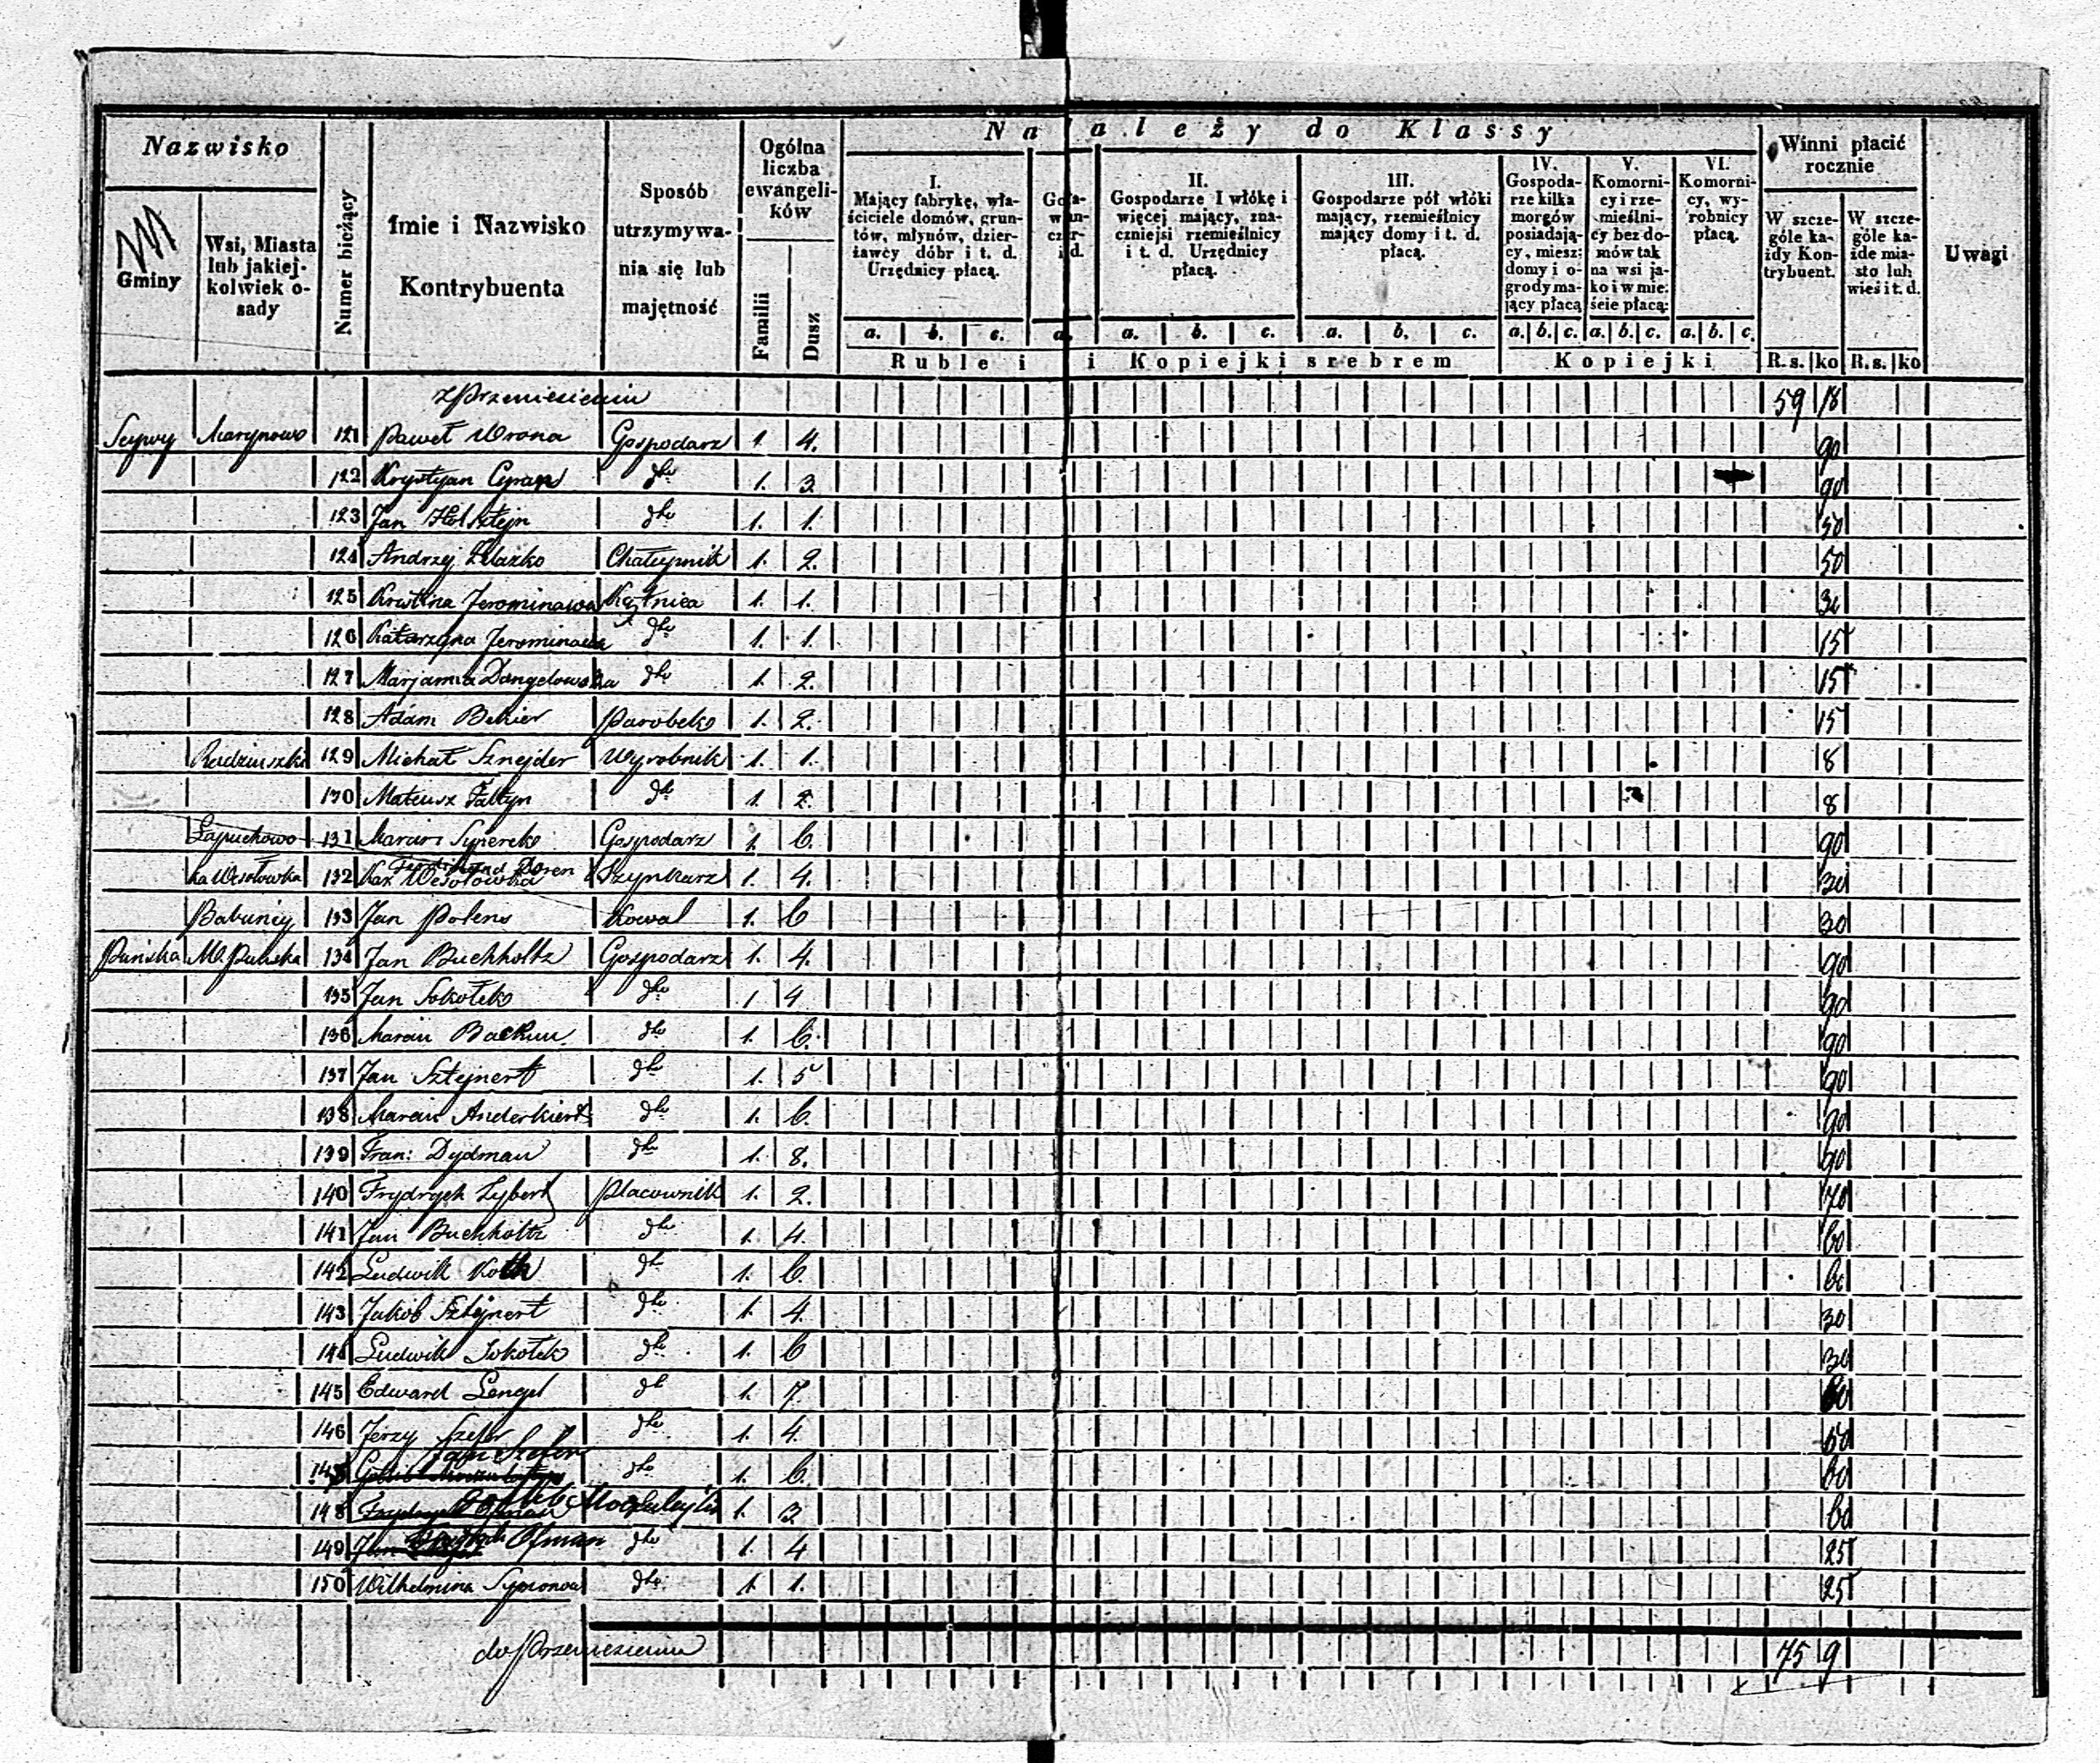 Nazwisko
Gminy
Wsi, Miasta lub jakiej-kolwiek o-sady
Numer bieżący
Imie i Nazwisko Kontrybuenta
Sposób utrzymywa-nia się lub majętność
Ogólna liczba ewangeli-ków
Familii
Dusz
Na a leży do Klassy
I. Mający fabrykę, wła-ściciele domów, grun-tów, młynów, dzier-żawcy dóbr i t. d. Urzędnicy płacą.
II. Gospodarze I włókę i więcej mający, zna-czniejsi rzemieślnicy i t. d. Urzędnicy płacą.
III. Gospodarze pół włóki mający, rzemieślnicy mający domy i t. d. płacą.
IV. Gospoda-rze kilka morgów posiadają-cy, miesz: domy i o-grody ma-jący płacą
V. Komorni-cy i rze-mieślni-cy bez do-mów tak na wsi ja-ko i w mie-ście płacą:
VI. Komorni-cy, wy-robnicy płacą.
Winni płacić rocznie
W szcze-góle ka-żdy Kon-trybuent.
W szcze-góle ka-żde mia-sto lub wieś i t. d.
Uwagi
a. b. c. a. a. b. c. a. b. c. a. b. c. a. b. c. a. b. c.
Ruble i i Kopiejki srebrem Kopiejki R. s. ko R. s. ko
z Przeniesienia 59 18
Sejwy Marynowo 121 Paweł Wrona Gospodarz 1. 4. 90
122 Krystyan Cyran dto 1. 3. 90
123 Jan Holsztejn dto 1. 1. 50
124 Andrzej Żelazko Chałupnik 1. 2. 50
125 Jerominowa Kątnica 1. 1. 30
126 Katarzyna Jerominowa dto 1. 1. 15
127 Marjanna Dangelowska dto 1. 2. 15
128 Adam Bekier Parobek 1. 2. 15
Radziuszki 129 Michał Sznejder Wyrobnik 1. 1. 8
130 Mateusz Faltyn dto 1. 2. 8
Łapuchowo 131 Marcin Gospodarz 1. 6. 90
Ka Wesołowka 132 Ferdinand Doren Kar. Wesołowka Szynkarz 1. 4. 30
Babańcy 133 Jan Polens Kowal 1. 6 30
Pańska W. Pańska 134 Jan Buchholtz Gospodarz 1. 4. 90
135 Jan Sokołek dto 1 4 90
136 Marcin Backun dto 1. 6. 90
137 Jan Sztejnert dto 1. 5 90
138 Marcin Anderkiert dto 1. 6. 90
139 Fran: Dydman dto 1. 8. 90
140 Frydrych Lybert Placownik 1. 2. 70
141 Jan Buchholtz dto 1. 4. 60
142 Ludwik Koth dto 1. 6. 60
143 Jakób Sztejnert dto 1. 4. 30
144 Ludwik Sokołek dto 1. 6 30
145 Edward Lengel dto 1. 7. 60
146 Jerzy Szefer dto 1. 4. 60
147 Jan Szefer dto 1. 6. 60
148 Gotlib 1. 3. 60
149 Frydrych Ofman dto 1. 4 25
150 Wilhelmina Symonowa dto 1. 1. 25
do Przeniesienia 75 9